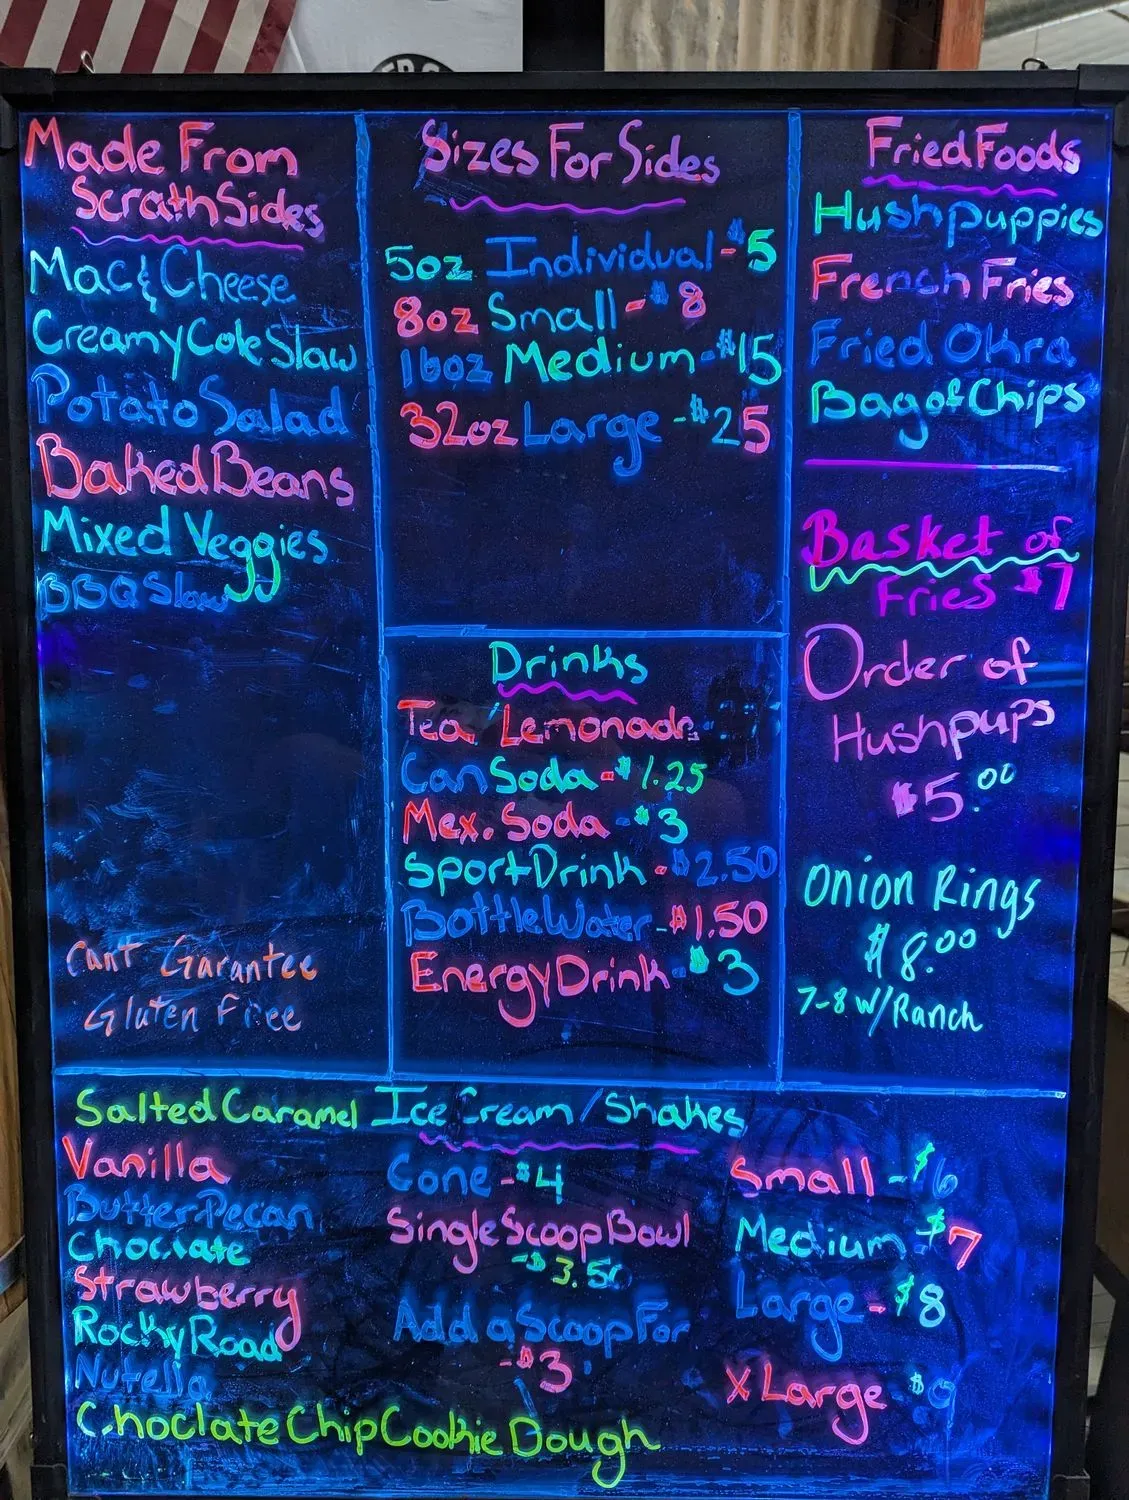 Made From
Scrath Sides
Mac & Cheese
Creamy Cole Slaw
Potato Salad
Baked Beans
Mixed Veggies
BBQ Slaw
Cant Garantee
Gluten Free
Sizes For Sides
5oz Individual - $5
8oz Small - $8
16oz Medium - $15
32oz Large - $25
Drinks
Tea/Lemonade
Can Soda - $1.25
Mex. Soda - $3
Sport Drink - $2.50
Bottle Water - $1.50
Energy Drink - $3
Fried Foods
Hushpuppies
French Fries
Fried Okra
Bag of Chips
Basket of
Fries $7
Order of
Hushpups
$5.00
Onion Rings
$8.00
7-8 w/Ranch
Ice Cream/Shakes
Salted Caramel
Vanilla
Butter Pecan
Choclate
Strawberry
Rocky Road
Nutella
Choclate Chip Cookie Dough
Cone - $4
Single Scoop Bowl
- $3.50
Add a Scoop For
- $3
Small - $6
Medium - $7
Large - $8
X Large $9